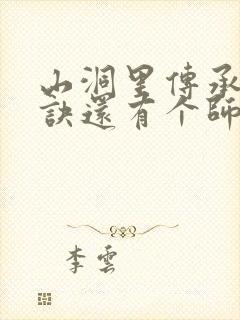 山洞里傳承
訣還有个師
李雲